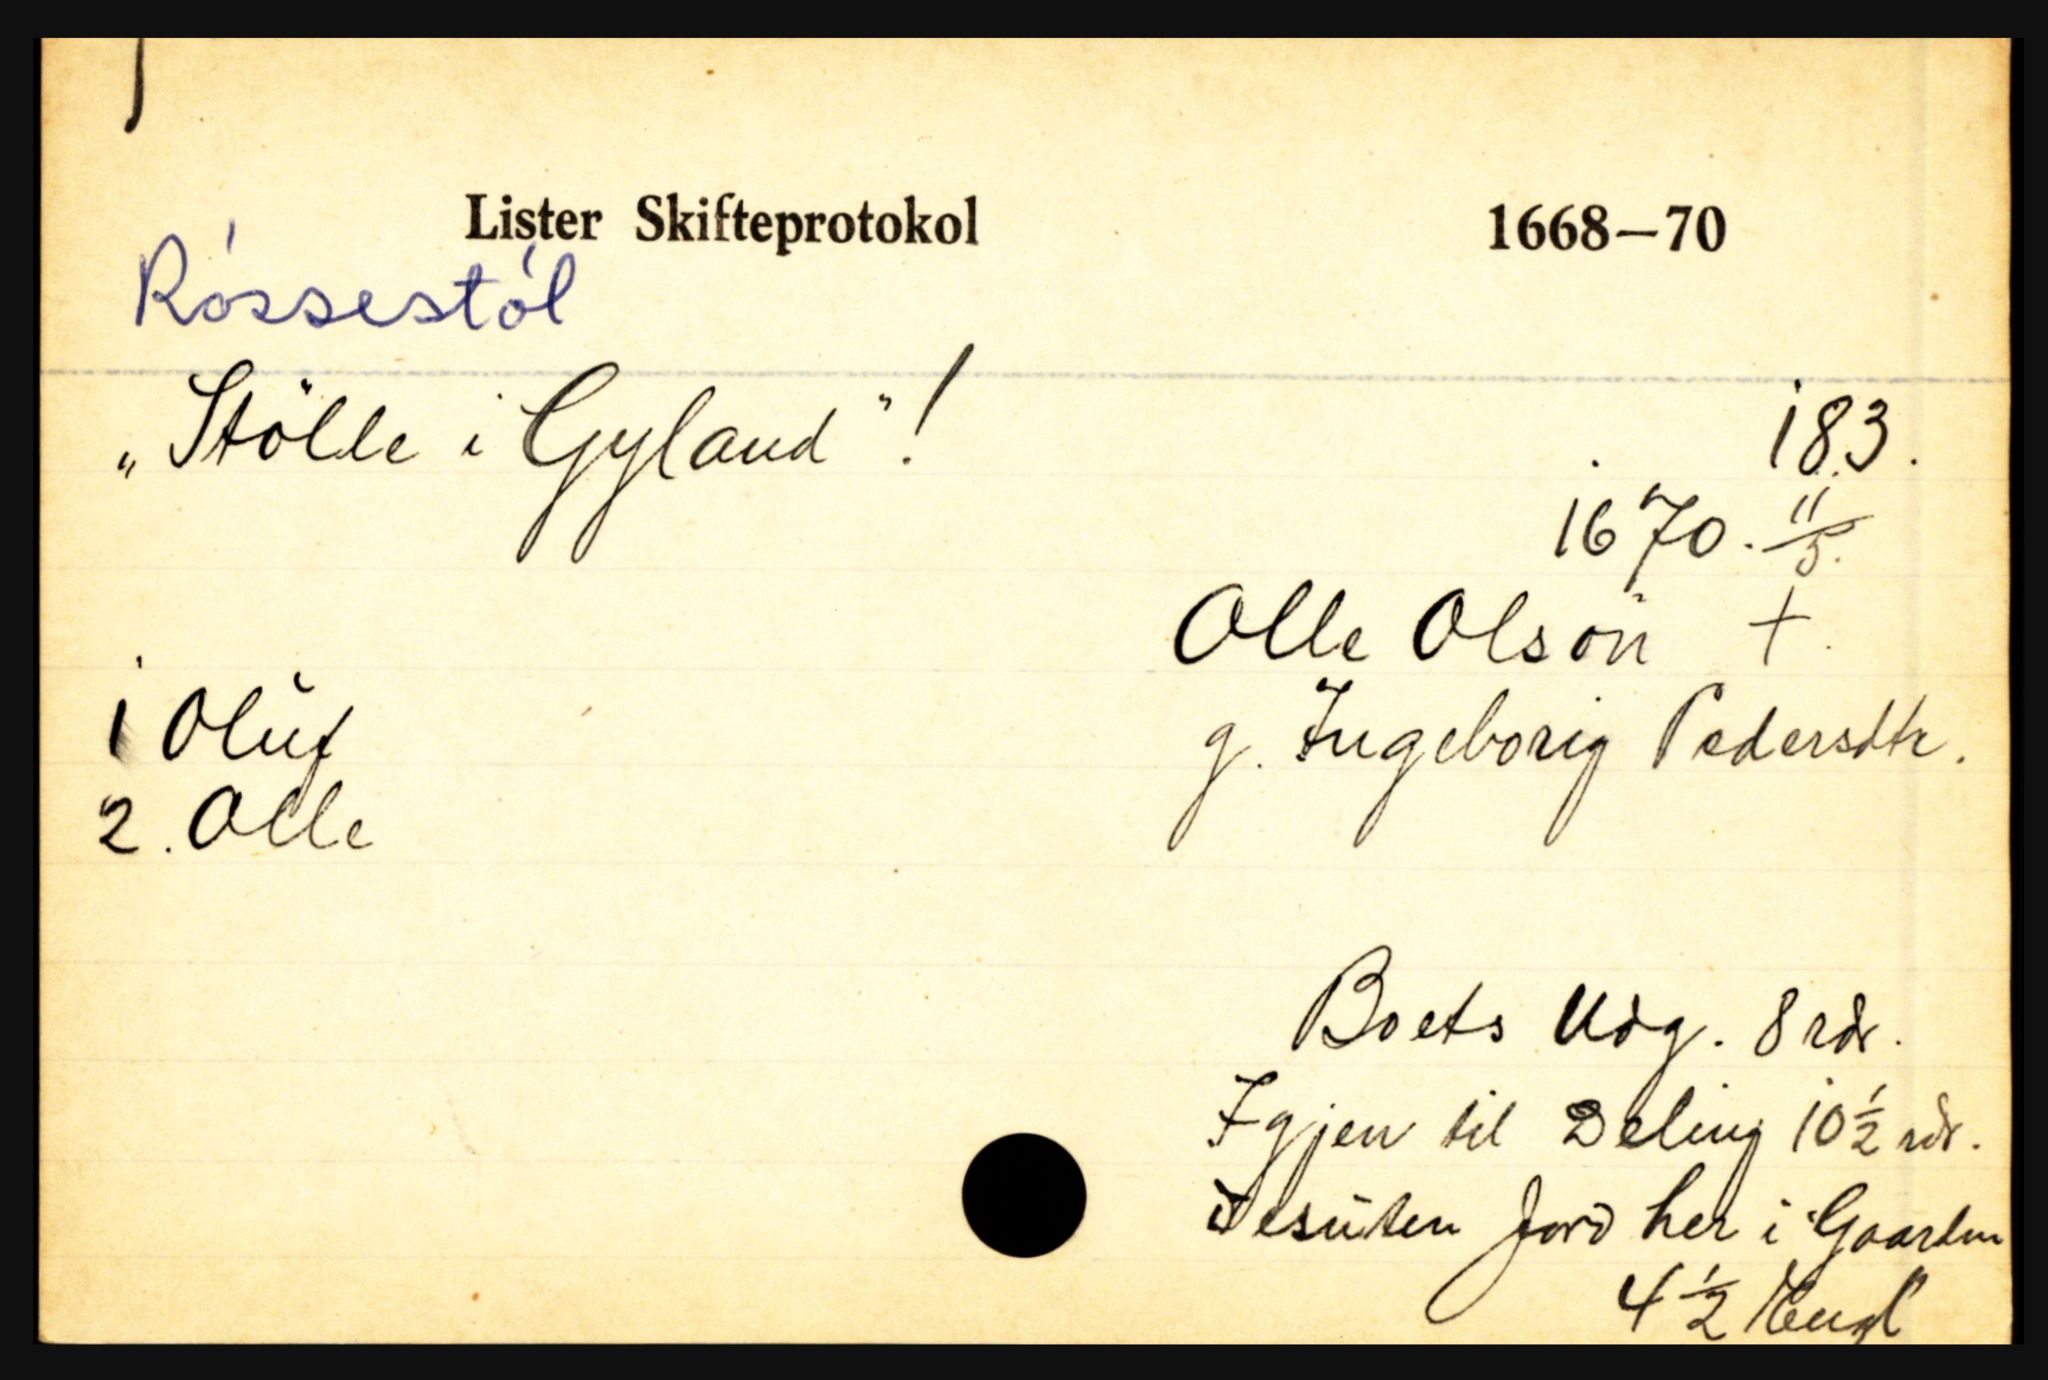 Lister Skifteprotokol 1668—70
Róssestól
„Stölle i Gyland"!
183.
1670. 11/5.
Olle Olsön +.
g. Ingeborig Pedersdtr.
1 Oluf
2. Olle
Boets Udg. 8 rdr.
Igjen til Deling 10 1/2 rdr.
Desuten Jord her i Gaarden
4 1/2 Engl